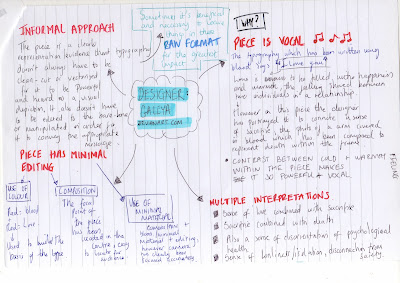 INFORMAL APPROACH
The piece if a clear
representation evidence that typography
doesn't always have to be
clean-cut or vectorised
for it to be powerful
and heard on a visual
depiction, it also doesn't have
to be edited to the bare bone
or manipulated in order for
it to convey the appropriate
message.
Sometimes it's beneficial
and necessary to leave
things in their
RAW FORMAT
for the greater
impact.
DESIGNER:
GATEYA
DEVIANART.COM
WHY?
PIECE IS VOCAL
The typography which has been written using
blood for "I Love you"
Love is to be filled with happiness
and warmth, the feeling shared between
two individuals in a relationship.
However in this piece the designer
has portrayed it to connote a sense
of sacrifice, the shot of a arm covered
in blood which has been compared to
represent death within the frame.
• CONTRAST BETWEEN COLD + WARMTH
WITHIN THE PIECE MAKES
IT SO POWERFUL & VOCAL
FEELING
PIECE HAS MINIMAL
EDITING
USE OF
COLOUR
Red: blood
Red: Love
Used to build the
basis of the
COMPOSITION
The focal
point of
the piece
has been
located in the
centre, easy
to locate for
audience.
USE OF
MINIMAL
MATERIAL
COMPOSITION +
uses minimal
material + editing,
however concept
has clearly been
formed
MULTIPLE INTERPRETATIONS
Sense of love combined with sacrifice
Sacrifice combined with death
Also a sense of disorientation of psychological
health
Sense of loneliness/isolation, disconnection from
society.